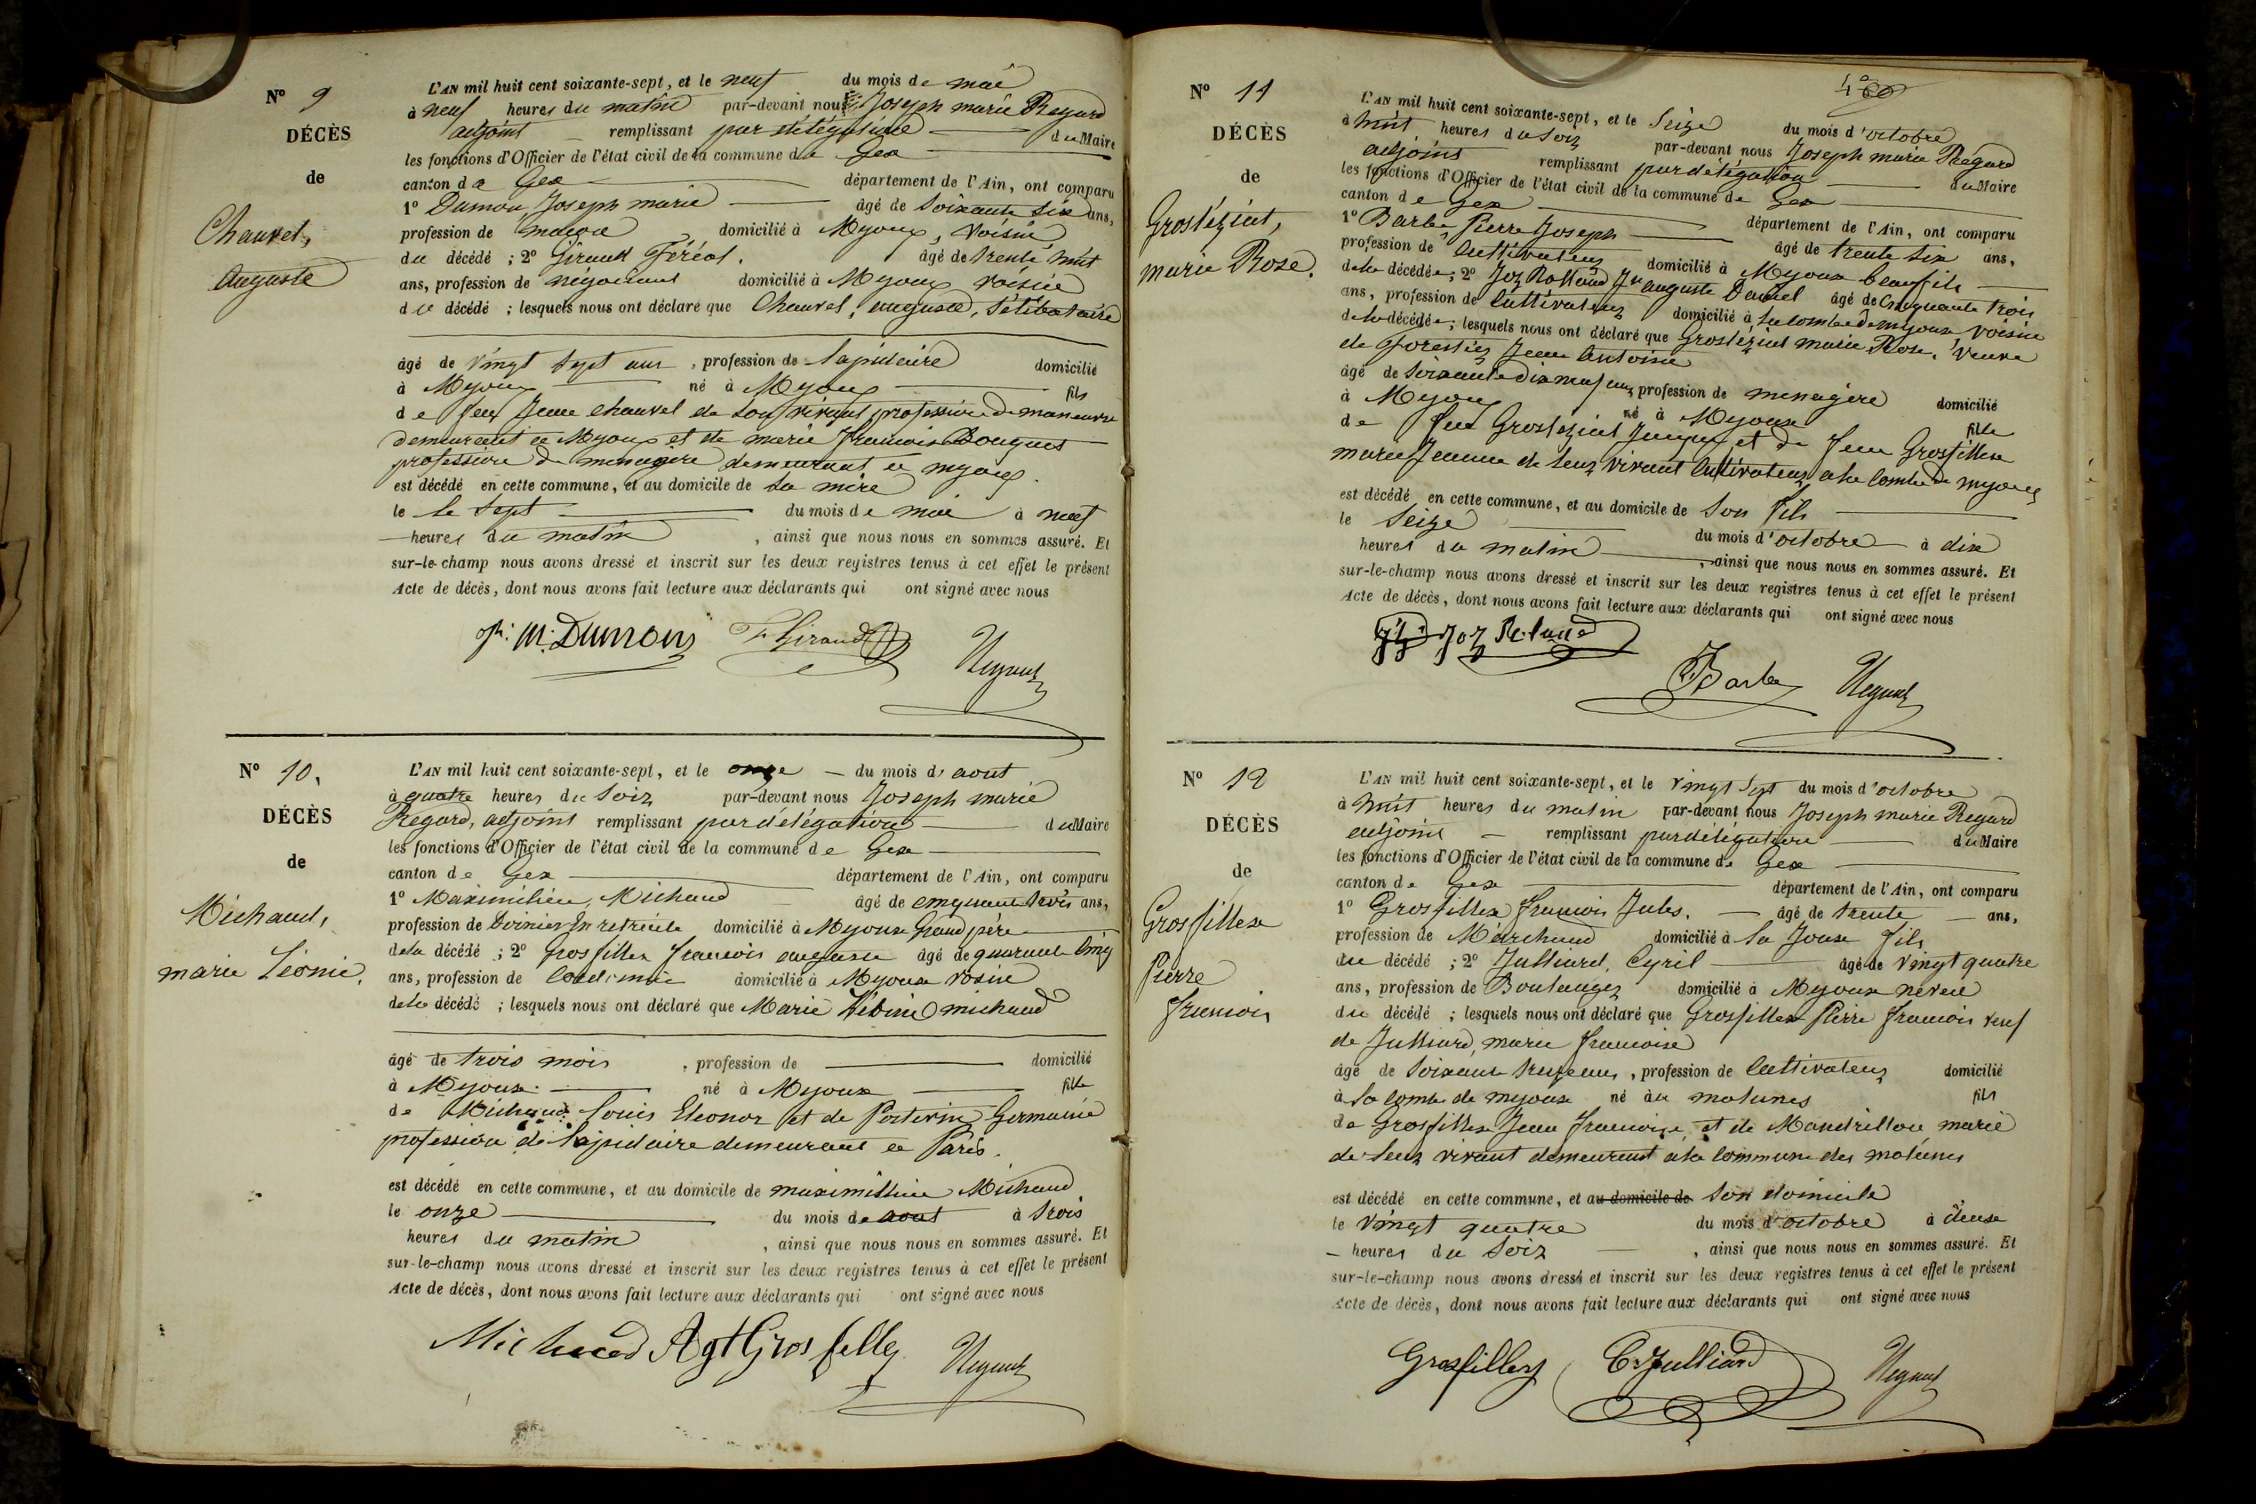 N° 9
DÉCÈS
de
Chauvet,
Auguste
L'AN mil huit cent soixante-sept, et le neuf du mois de mai
à neuf heures du matin par-devant nous Joseph marie Regard
adjoint remplissant par délégation du Maire
les fonctions d'Officier de l'état civil de la commune de Gex
canton de Gex département de l'Ain, ont comparu
1° Dumon Joseph marie âgé de Soixante six ans,
profession de maçon domicilié à Myoux, voisin
du décédé ; 2° Giraud Féréol. âgé de trente huit
ans, profession de négociant domicilié à Myoux voisin
du décédé ; lesquels nous ont déclaré que Chauvet, auguste, Sélibataire
âgé de vingt sept ans, profession de lapidaire domicilié
à Myoux né à Myoux fils
de feu Jean Chauvet de son vivant profession de maneuvre
demeurant a Myoux et de marie francoise Bouquet
profession de menagere demeurant a myoux.
est décédé en cette commune, et au domicile de sa mère
le le sept du mois de mai à neuf
heures du matin, ainsi que nous nous en sommes assuré. Et
sur-le-champ nous avons dressé et inscrit sur les deux registres tenus à cet effet le présent
Acte de décès, dont nous avons fait lecture aux déclarants qui ont signé avec nous
M. Dumon F. Giraud Regard
N° 10,
DÉCÈS
de
Michaud,
marie Léonie.
L'AN mil huit cent soixante-sept, et le onze du mois d'aout
à quatre heures du Soir par-devant nous Joseph marie
Regard, adjoint remplissant par délégation du Maire
les fonctions d'Officier de l'état civil de la commune de Gex
canton de Gex département de l'Ain, ont comparu
1° Maximilien, Michaud âgé de cinquante trois ans,
profession de Doinier En retriete domicilié à Myoux Grand père
de la décédé ; 2° Grosfillex francois auguste âgé de quarante Cinq
ans, profession de domicilié à Myoux vosin
de la décédé ; lesquels nous ont déclaré que Marie michaud
âgé de trois mois, profession de domicilié
à Myoux. né à Myoux fille
de Michaud Louis Eleonor et de Germanie
profession de lapidaire demeurant a Paris.
est décédé en cette commune, et au domicile de maximillien Michaud
le onze du mois de aout à trois
heures du matin, ainsi que nous nous en sommes assuré. Et
sur-le-champ nous avons dressé et inscrit sur les deux registres tenus à cet effet le présent
Acte de décès, dont nous avons fait lecture aux déclarants qui ont signé avec nous
Michaud Agt Grosfilley Regard
N° 11
DÉCÈS
de
Grosléziat,
marie Rose.
L'AN mil huit cent soixante-sept, et le Seize du mois d'octobre
à huit heures du Soir par-devant nous Joseph marie Régard
adjoint remplissant par délégation du Maire
les fonctions d'Officier de l'état civil de la commune de Gex
canton de Gex département de l'Ain, ont comparu
1° Barbe, Pierre Joseph âgé de trente Six ans,
profession de Cultivateur domicilié à Myoux beaufils
de la décédée ; 2° Joz Rolland Jh auguste Daniel âgé de Cinquante trois
ans, profession de Cultivateur domicilié à la combe de myoux voisin
de la décédée ; lesquels nous ont déclaré que Grosléziat marie Rose, veuve
de Forestier Jean Antoine
âgé de Soixante Dix neuf ans profession de menagère domicilié
à Myoux né à Myoux fille
de feu Grosleziat et de feue Grosfillex
marie Jeanne de leur vivant Cultivateur a la Combe de myoux
est décédé en cette commune, et au domicile de Son fils
le Seize du mois d'octobre à dix
heures du matin, ainsi que nous nous en sommes assuré. Et
sur-le-champ nous avons dressé et inscrit sur les deux registres tenus à cet effet le présent
Acte de décès, dont nous avons fait lecture aux déclarants qui ont signé avec nous
Joz Roland
Barbe Regard
N° 12
DÉCÈS
de
Grosfillex
Pierre
francois
L'AN mil huit cent soixante-sept, et le vingt Sept du mois d'octobre
à huit heures du matin par-devant nous Joseph marie Regard
adjoint remplissant par délégation du Maire
les fonctions d'Officier de l'état civil de la commune de Gex
canton de Gex département de l'Ain, ont comparu
1° Grosfillex francois Jules. âgé de trente ans,
profession de Marchand domicilié à la Joux fils
du décédé ; 2° Julliard, Cyril âgé de vingt quatre
ans, profession de Boulanger domicilié à Myoux neveu
du décédé ; lesquels nous ont déclaré que Grosfillex Pierre francois veuf
de Julliard, marie francoise
âgé de Soixante treize ans, profession de Cultivateur domicilié
à la Combe de myoux né au molunes fils
de Grosfillex Jean francois, et de Mandrillon marie
de leur vivant demeurant a la Commune des molunes
est décédé en cette commune, et au domicile de Son domicile
le vingt quatre du mois d'octobre à deux
heures du Soir, ainsi que nous nous en sommes assuré. Et
sur-le-champ nous avons dressé et inscrit sur les deux registres tenus à cet effet le présent
Acte de décès, dont nous avons fait lecture aux déclarants qui ont signé avec nous
Grosfilley C. Julliard Regard